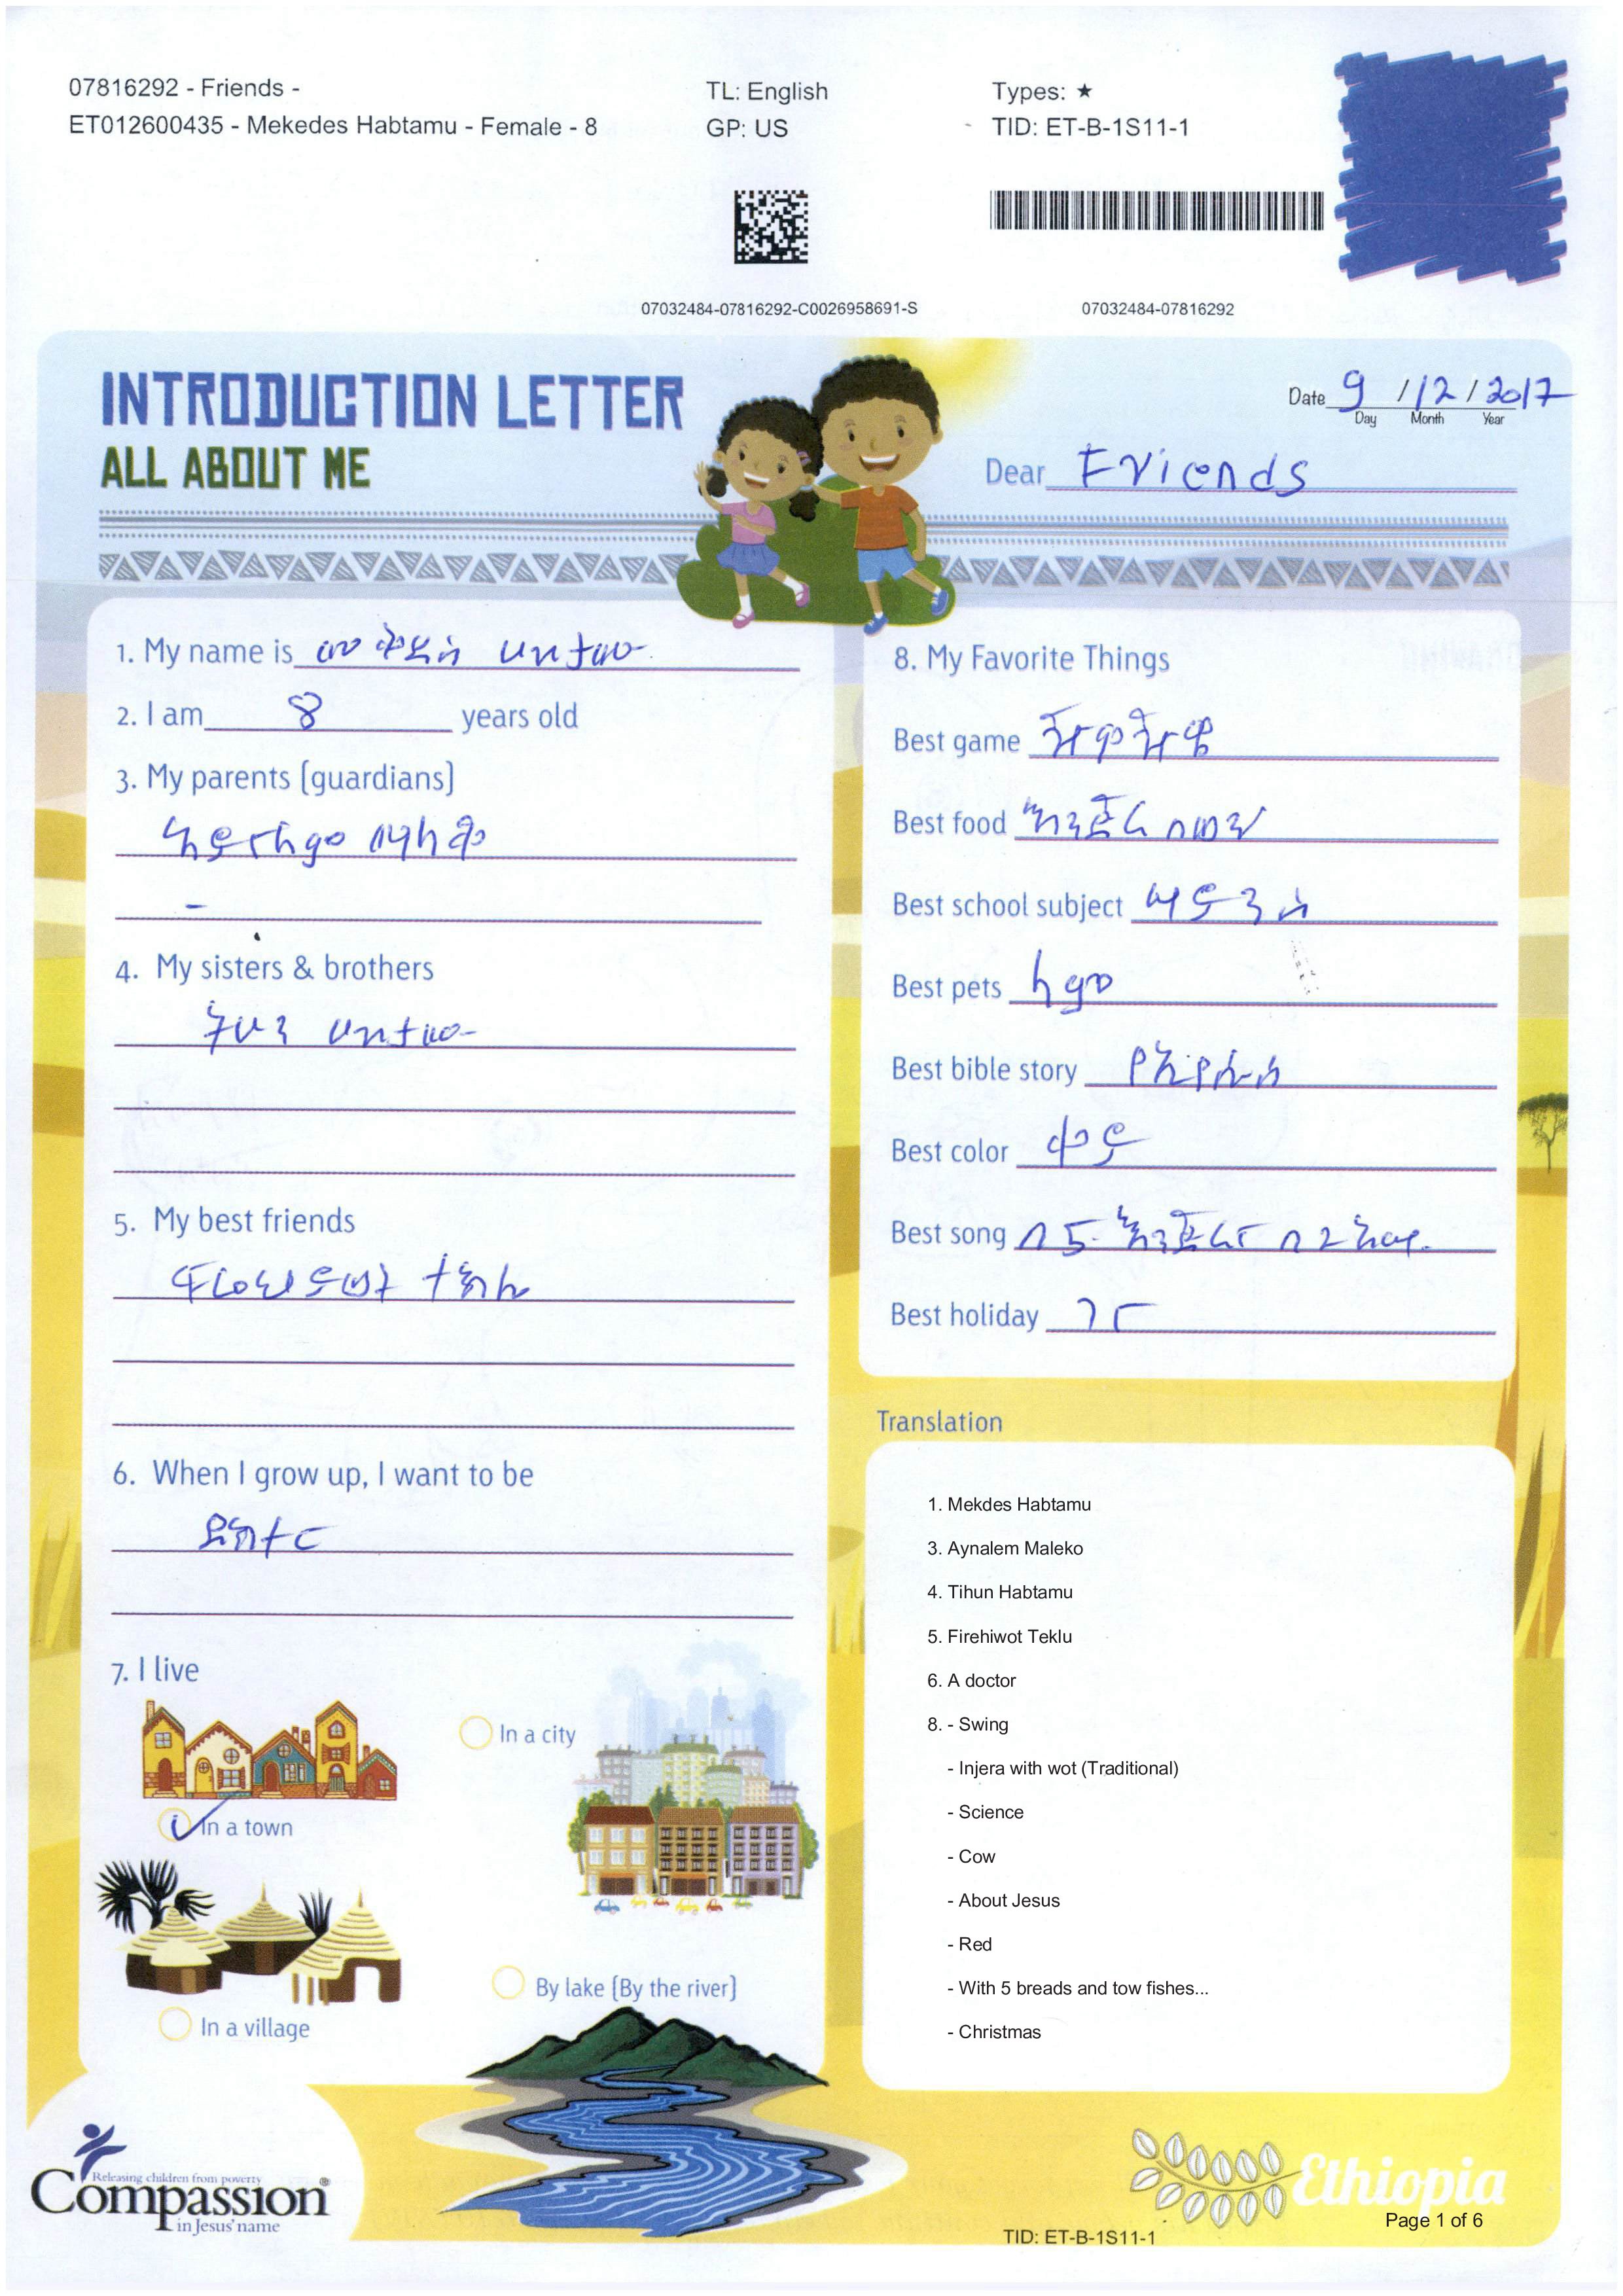 07816292 - Friends -
ET012600435 - Mekedes Habtamu - Female - 8
TL: English
GP: US
Types: ★
TID: ET-B-1S11-1
07032484-07816292-C0026958691-S
07032484-07816292
INTRODUCTION LETTER
ALL ABOUT ME
Date 9 / 12 / 2017
Day Month Year
Dear Friends
1. My name is መቅደስ ሀብታሙ
2. I am 8 years old
3. My parents (guardians)
አይናለም
4. My sisters & brothers
ትሁን ሀብታሙ
5. My best friends
ፍሬህይወት ተክሉ
6. When I grow up, I want to be
ዶክተር
7. I live
In a city
In a town
By lake (By the river)
In a village
8. My Favorite Things
Best game
Best food እንጀራ በወጥ
Best school subject ሳይንስ
Best pets ላም
Best bible story የኢየሱስ
Best color ቀይ
Best song በ5 እንጀራና በ2 አሣ
Best holiday ገና
Translation
1. Mekdes Habtamu
3. Aynalem Maleko
4. Tihun Habtamu
5. Firehiwot Teklu
6. A doctor
8. - Swing
- Injera with wot (Traditional)
- Science
- Cow
- About Jesus
- Red
- With 5 breads and tow fishes...
- Christmas
Releasing children from poverty
Compassion®
in Jesus' name
Ethiopia
Page 1 of 6
TID: ET-B-1S11-1